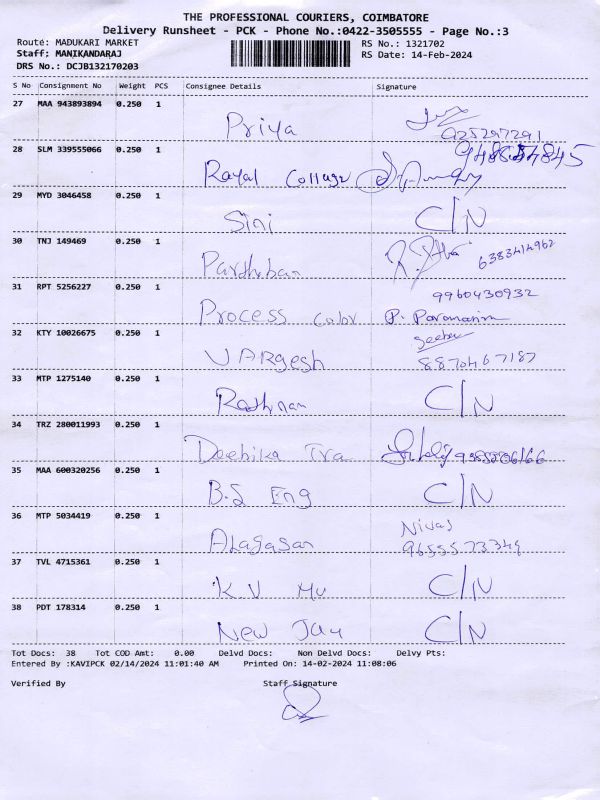 THE PROFESSIONAL COURIERS, COIMBATORE
Delivery Runsheet - PCK - Phone No.:0422-3505555 - Page No.:3
Route: MADUKARI MARKET RS No.: 1321702
Staff: MANIKANDARAJ RS Date: 14-Feb-2024
DRS No.: DCJB132170203
S No Consignment No Weight PCS Consignee Details Signature
27 MAA 943893894 0.250 1 Priya 925297291
28 SLM 339555066 0.250 1 Rayal Collage
29 MYD 3046458 0.250 1 Sini C/N
30 TNJ 149469 0.250 1 Parthiban 6383414962
31 RPT 5256227 0.250 1 Process Color 9960430932
P.
32 KTY 10026675 0.250 1 VARgesh 8870467187
33 MTP 1275140 0.250 1 C/N
34 TRZ 280011993 0.250 1 Deebika Tra
35 MAA 600320256 0.250 1 B.S Eng C/N
36 MTP 5034419 0.250 1 Alagasan Nivas
9655573349
37 TVL 4715361 0.250 1 K.V Mu C/N
38 PDT 178314 0.250 1 New Jay C/N
Tot Docs: 38 Tot COD Amt: 0.00 Delvd Docs: Non Delvd Docs: Delvy Pts:
Entered By :KAVIPCK 02/14/2024 11:01:40 AM Printed On: 14-02-2024 11:08:06
Verified By Staff Signature